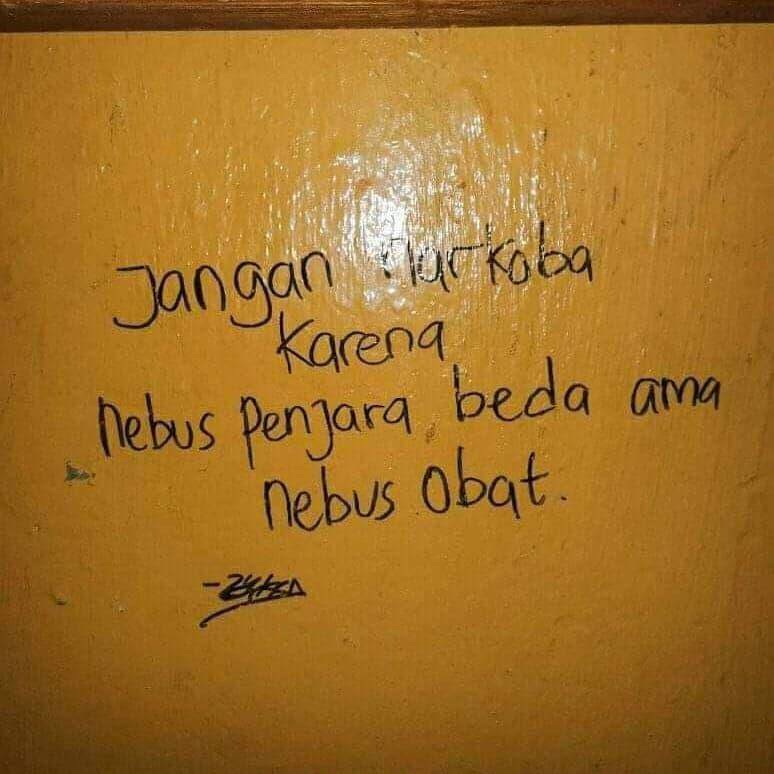 Jangan Narkoba
Karena
Nebus Penjara beda ama
Nebus Obat.